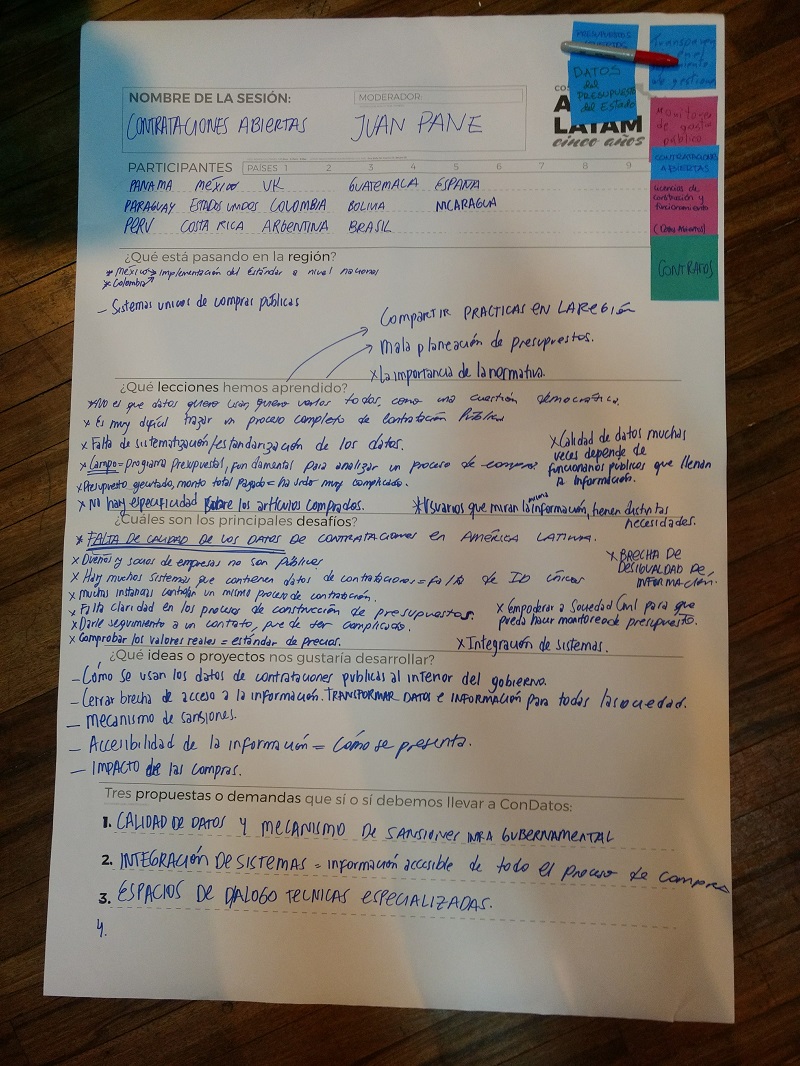 NOMBRE DE LA SESIÓN:
CONTRATACIONES ABIERTAS
MODERADOR:
JUAN PANE
LATAM
cinco años
PRESUPUESTOS
DATOS del PRESUPUESTO del Estado
Monitoreo de gasto público
CONTRATACIONES ABIERTAS
licencias de construcción y funcionamiento
CONTRATOS
PARTICIPANTES PAÍSES 1 2 3 4 5 6 7 8 9
PANAMA MÉXICO UK GUATEMALA ESPAÑA
PARAGUAY ESTADOS UNIDOS COLOMBIA BOLIVIA NICARAGUA
PERU COSTA RICA ARGENTINA BRASIL
¿Qué está pasando en la región?
* México → implementación del Estándar a nivel nacional
* Colombia
- Sistemas unicos de compras públicas
Compartir PRACTICAS EN LA REGIÓN
Mala planeación de presupuestos.
x La importancia de la normativa.
¿Qué lecciones hemos aprendido?
x No es que datos quiero usar, quiero verlos todos, como una cuestión democratica.
x Es muy difícil trazar un proceso completo de contratación Pública
x Falta de sistematización/estandarización de los datos.
x Campo = programa presupuestal, fundamental para analizar un proceso de compras
x Presupuesto ejecutado, monto total pagado = ha sido muy complicado.
x No hay especificidad sobre los artículos comprados.
x Calidad de datos muchas veces depende de funcionarios públicos que llenan la información.
* Usuarios que miran la misma información, tienen distintas necesidades.
¿Cuáles son los principales desafíos?
* FALTA DE CALIDAD DE LOS DATOS DE CONTRATACIONES en AMÉRICA LATINA.
x Dueños y socios de empresas no son públicos
x Hay muchos sistemas que contienen datos de contrataciones = falta de ID únicos
x muchas instancias controlan un mismo proceso de contratación.
x Falta claridad en los procesos de construcción de presupuestos.
x Darle seguimiento a un contrato, puede ser complicado.
x Comprobar los valores reales = estándar de precios.
x BRECHA DE DESIGUALDAD DE INFORMACIÓN.
x Empoderar a Sociedad Civil para que pueda hacer monitoreo de presupuesto.
x Integración de sistemas.
¿Qué ideas o proyectos nos gustaría desarrollar?
- Cómo se usan los datos de contrataciones publicas al interior del gobierno.
- Cerrar brecha de acceso a la información. TRANSFORMAR DATOS e INFORMACIÓN para todas la sociedad.
- Mecanismo de sansiones.
- Accesibilidad de la información = Cómo se presenta.
- IMPACTO de las compras.
Tres propuestas o demandas que sí o sí debemos llevar a ConDatos:
1. CALIDAD DE DATOS Y MECANISMO DE SANSIONES INTRA GUBERNAMENTAL
2. INTEGRACIÓN DE SISTEMAS = información accesible de todo el proceso de compras
3. ESPACIOS DE DIALOGO TECNICAS ESPECIALIZADAS.
4.